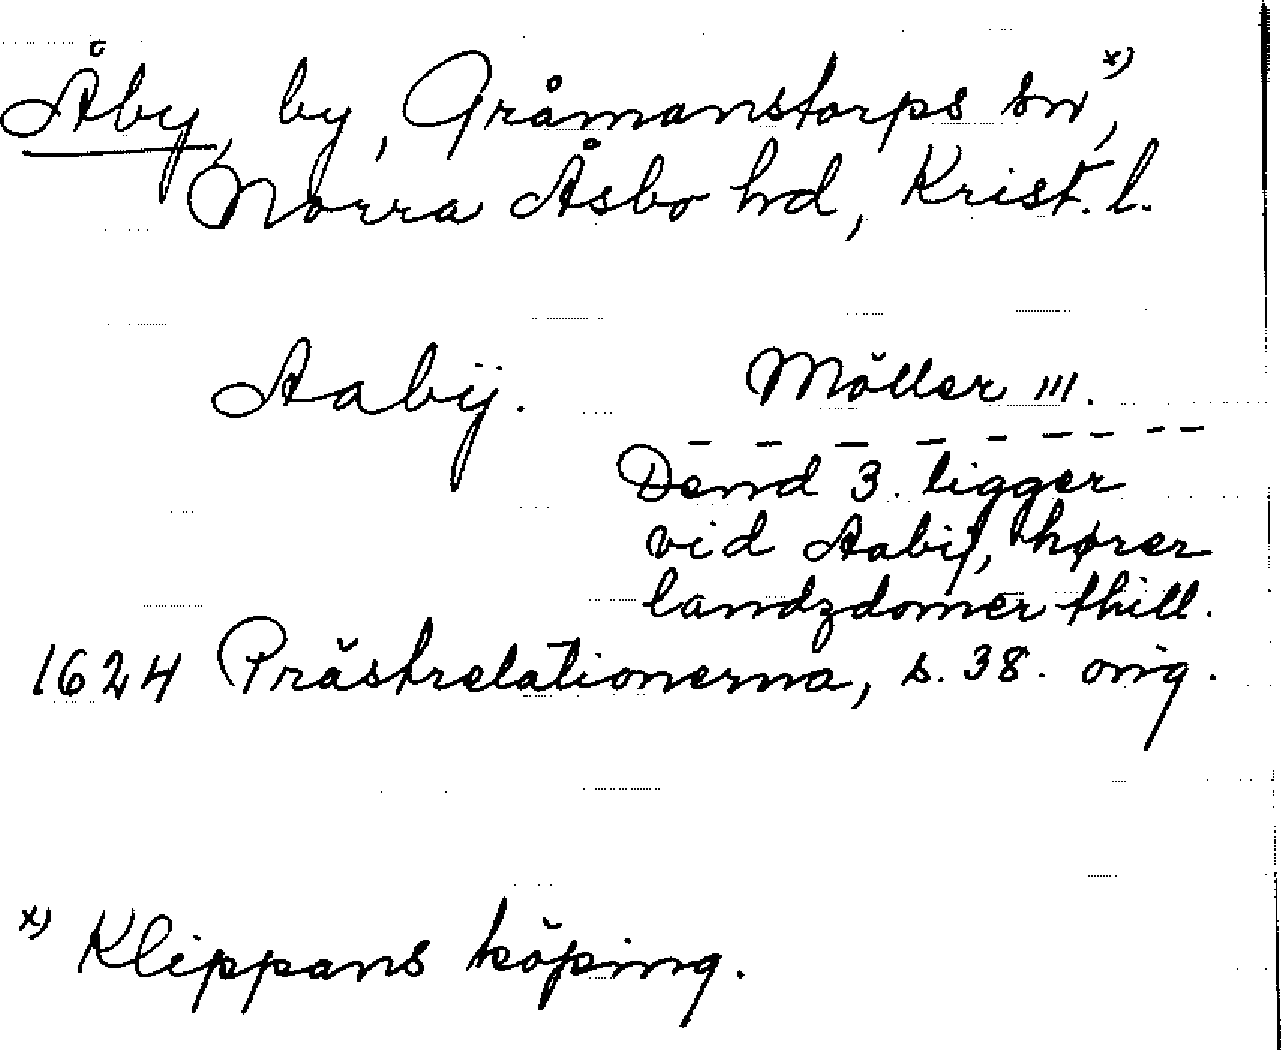 Åby, by, Gråmanstorps sn, x)
Norra Åsbo hd, Krist. l.
Aabÿ. Möller III.
Dend 3. ligger
vid Aabÿ, hører
landzdomer thill.
1624 Prästrelationerna, s. 38. orig.
x) Klippans köping.